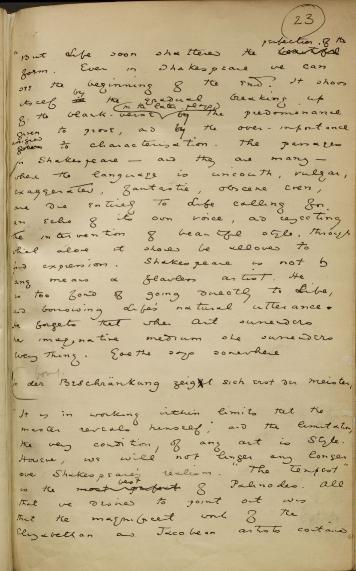 23
"But Life soon shattered the perfection of the beautiful
form. Even in Shakespeare we can
see the beginning of the end. It shows
itself by the gradual breaking up
of the blank-verse in the later plays, by the predominance
given to prose, and by the over-importance
assigned to characterisation. The passages
in Shakespeare – and they are many –
where the language is uncouth, vulgar,
exaggerated, fantastic, obscene even,
are due entirely to Life calling for
an echo of its own voice, and rejecting
the intervention of beautiful style, through
which alone it should be allowed to
find expression. Shakespeare is not by
any means a flawless artist. He
is too fond of going directly to Life,
and borrowing Life's natural utterance.
He forgets that when Art surrenders
her imaginative medium she surrenders
everything. Goethe says somewhere
In der Beschränkung zeigt sich erst der Meister,
"It is in working within limits that the
master reveals himself," and the limitation,
the very condition, of any art is Style.
However, we will not linger any longer
over Shakespeare's realism. "The Tempest"
is the most perfect best of Palinodes. All
that we desired to point out was
that the magnificent work of the
Elizabethan and Jacobean artists contained